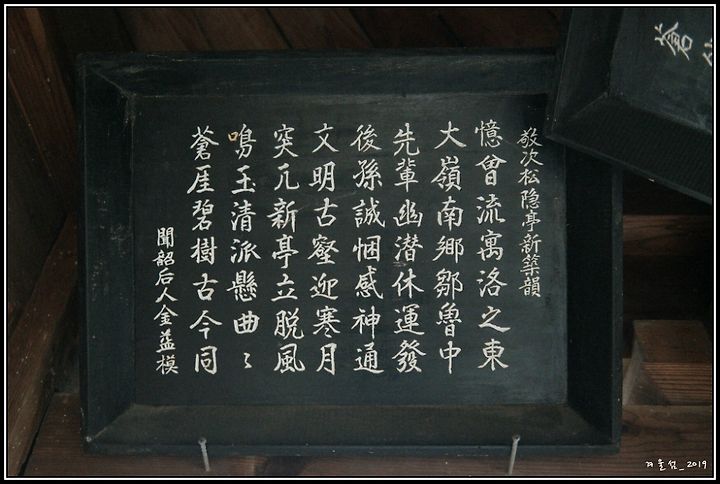 敬次松隐亭新築韻
憶曾流寓洛之東
大嶺南鄉鄒魯中
先輩幽潜休運發
後孫誠悃感神通
文明古壑迎寒月
突兀新亭立脫風
鳴玉清派懸曲〻
蒼厓碧樹古今同
聞韶后人金益模
蒼
겨울섬_2019